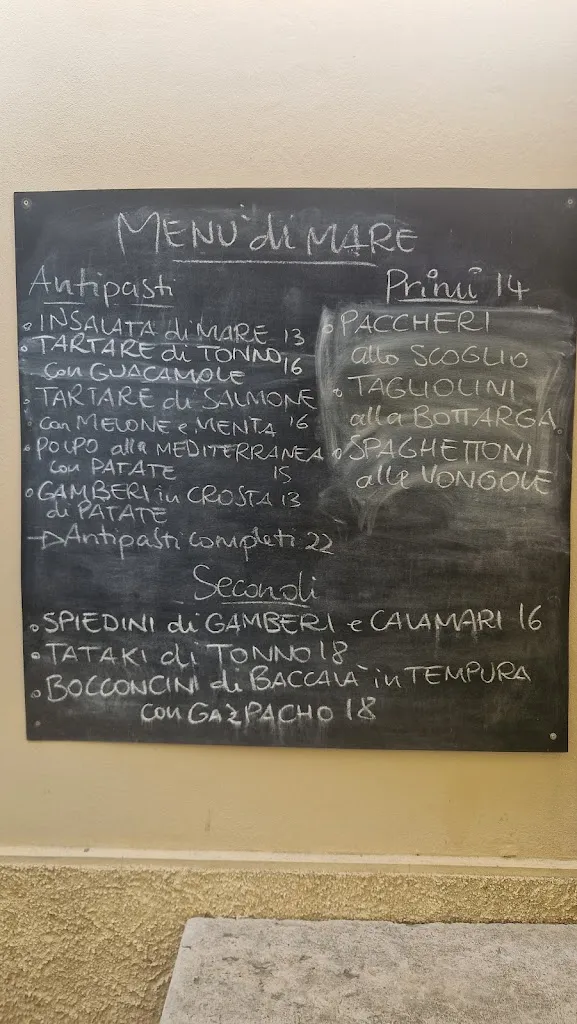 MENU' di MARE
Antipasti
• INSALATA di MARE 13
• TARTARE di TONNO 16
con GUACAMOLE
• TARTARE di SALMONE
con MELONE e MENTA 16
• POLPO alla MEDITERRANEA
con PATATE 15
• GAMBERI in CROSTA 13
di PATATE
→ Antipasti completi 22
Primi 14
• PACCHERI
allo SCOGLIO
• TAGLIOLINI
alla BOTTARGA
• SPAGHETTONI
alle VONGOLE
Secondi
• SPIEDINI di GAMBERI e CALAMARI 16
• TATAKI di TONNO 18
• BOCCONCINI di BACCALA' in TEMPURA
con GAZPACHO 18